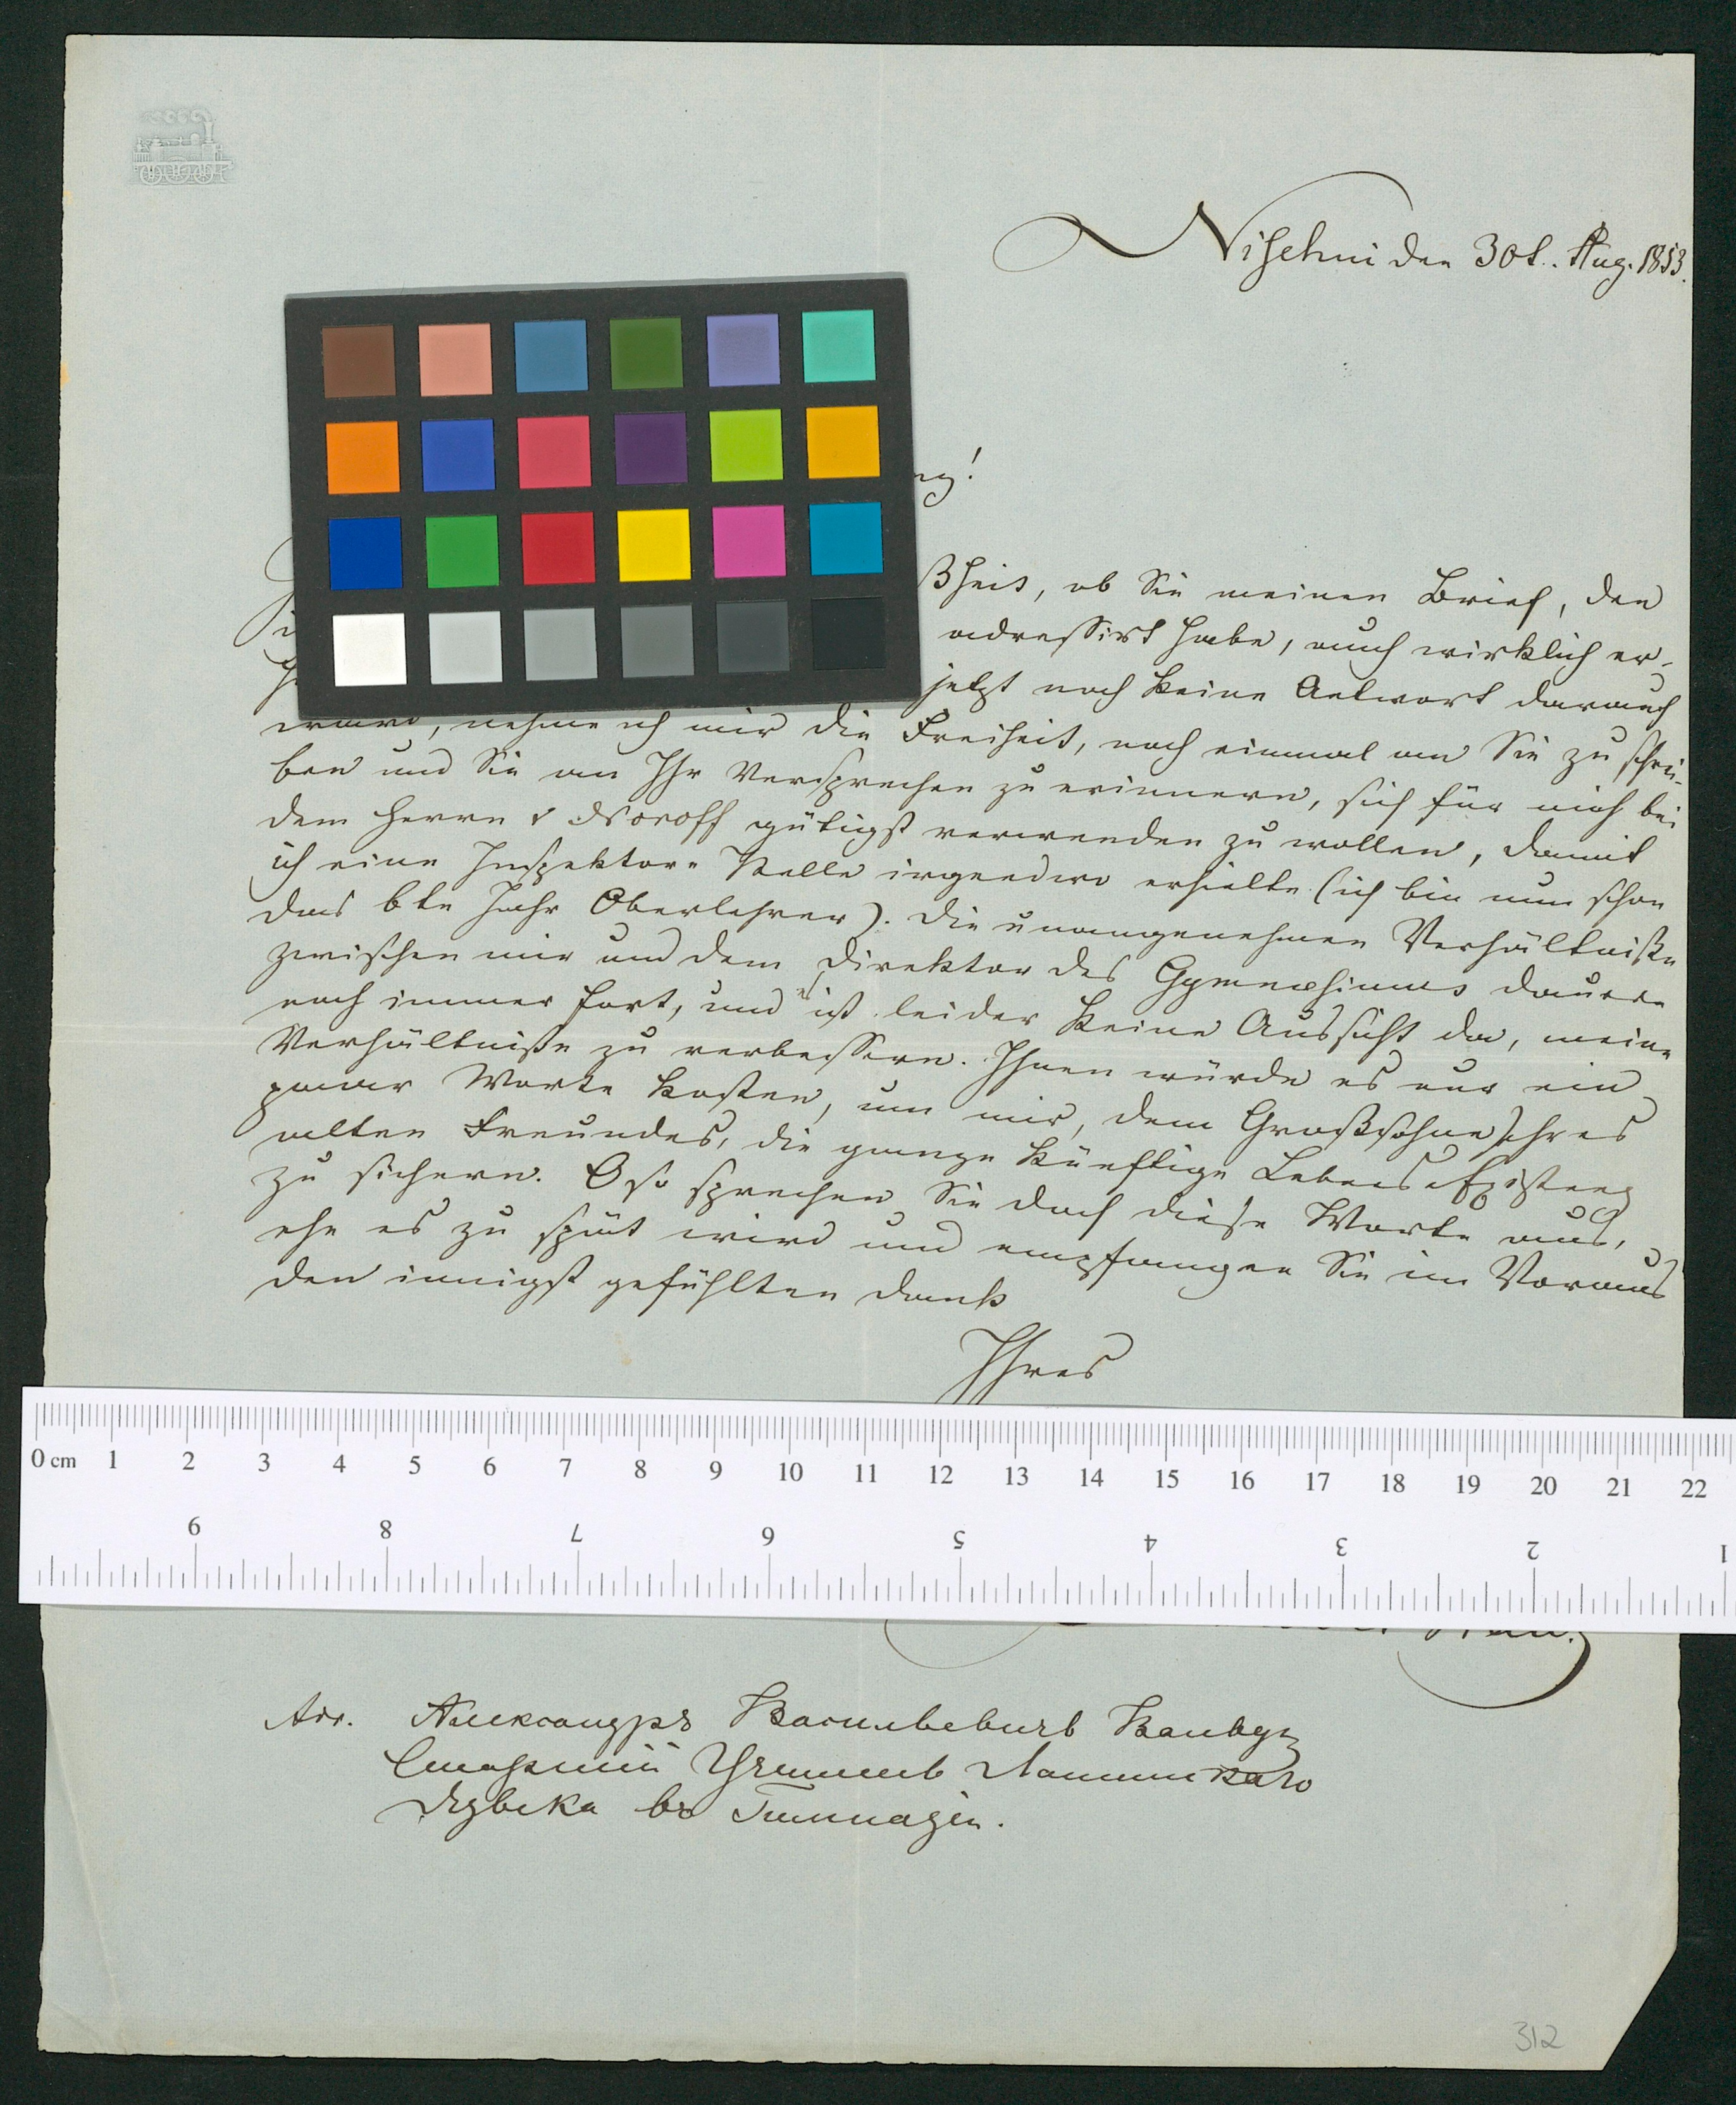 Nischni den 30t. Aug. 1853.
ng!
ßheit, ob Sie meinen Brief, den
adressirt habe, auch wirklich er-
jetzt noch keine Antwort darauf
ward, nehme ich mir die Freiheit, noch einmal an Sie zu schrei-
ben und Sie an Ihr Versprechen zu erinnern, sich für mich bei
dem Herrn v Noroff gütigst verwenden zu wollen, damit
ich eine Inspektor-Stelle irgendwo erhielte (ich bin nun schon
das 6te Jahr Oberlehrer). Die unangenehmen Verhältniße
zwischen mir und dem Direktor des Gymnasiums dauern
noch immer fort, und es ist leider keine Aussicht da, meine
Verhältniße zu verbessern. Ihnen würde es nur ein
paar Worte kosten, um mir, dem Großsohne Ihres
alten Freundes, die ganze künftige Lebens-Existenz
zu sichern. O so sprechen Sie doch diese Worte aus,
ehe es zu spät wird und empfangen Sie im Voraus
den innigst gefühlten Dank
Ihres
0 cm 1 2 3 4 5 6 7 8 9 10 11 12 13 14 15 16 17 18 19 20 21 22
9 8 7 6 5 4 3 2 1
Adr. Александръ Васильевичъ
Старшій Учитель Латинскаго
Языка въ Гимназіи.
312